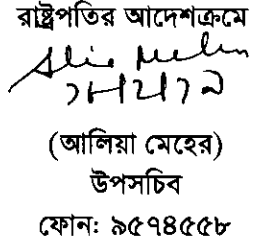 রাষ্ট্রপতির আদেশক্রমে
(আলিয়া মেহের)
উপসচিব
ফোন: ৯৫৭৪৫৫৮